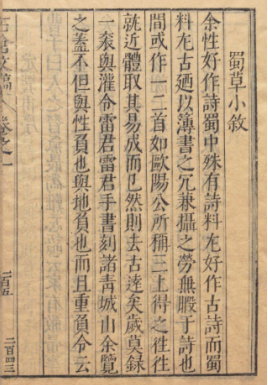 蜀草小敘
余性好作詩蜀中殊有詩料尤好作古詩而蜀
料尤古廼以簿書之冗兼攝之勞無暇于詩也
間或作一二首如歐陽公所稱三上得之徃徃
就近體取其易成而已然則去古逺矣歲莫録
一袠與灌令雷君雷君手書刻諸青城山余覽
之蓋不但與性負也與地負也而且重負令云
卷之一
二百四三